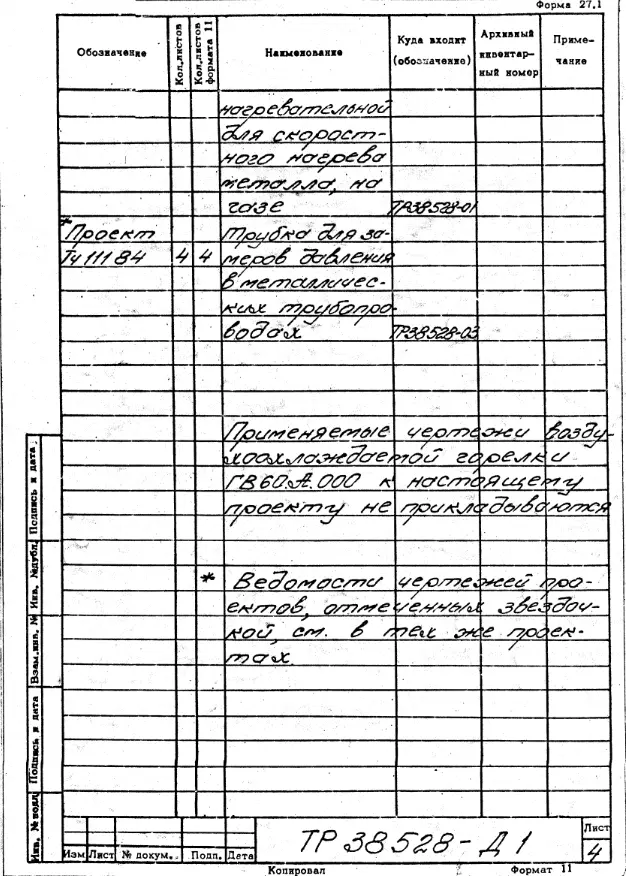 Форма 27.1
Обозначение Кол.листов Кол.листов формата 11 Наименование Куда входит (обозначение) Архивный инвентар-ный номер Приме-чание
нагревательной
для скорост-
ного нагрева
металла, на
газе ТР38528-01
* Проект Трубка для за-
Тч 111 84 4 4 меров давления
в металличес-
ких трубопро-
водах ТР38528-03
Применяемые чертежи возду-
хоохлаждаемой горелки
ГВ60А.000 к настоящему
проекту не прикладываются
* Ведомости чертежей про-
ектов, отмеченных звездоч-
кой, см. в тех же проек-
тах.
Инв. № подл. Подпись и дата Взам.инв. № Инв. №дубл. Подпись и дата
Изм Лист № докум. Подп. Дата
ТР 38528-Д1
Лист
4
Копировал Формат 11